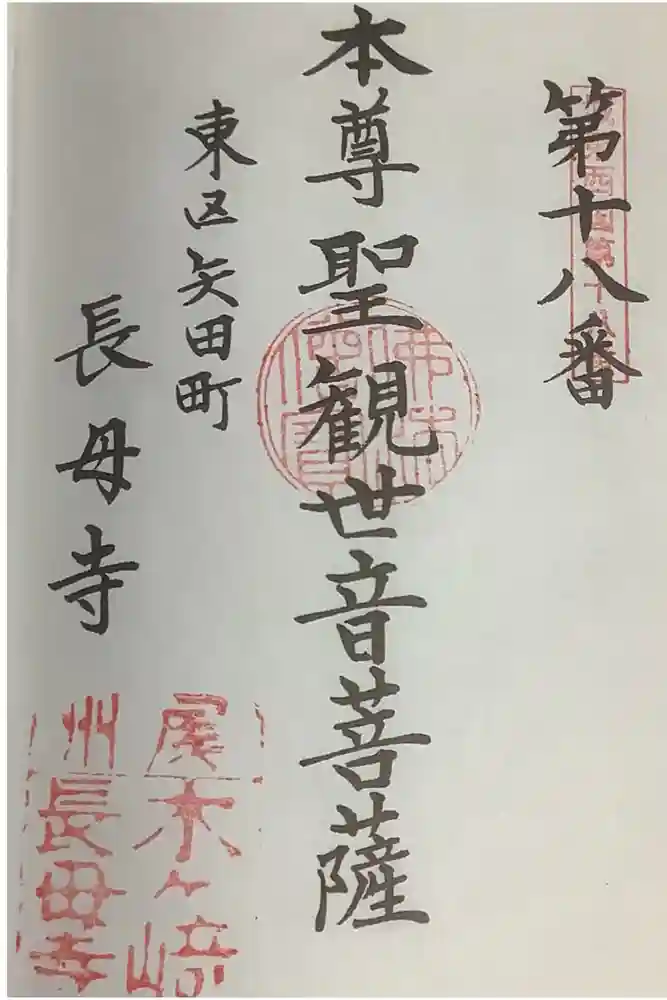 第十八番
本尊聖観世音菩薩
東区矢田町
長母寺
尾木ヶ﨑
州長母寺